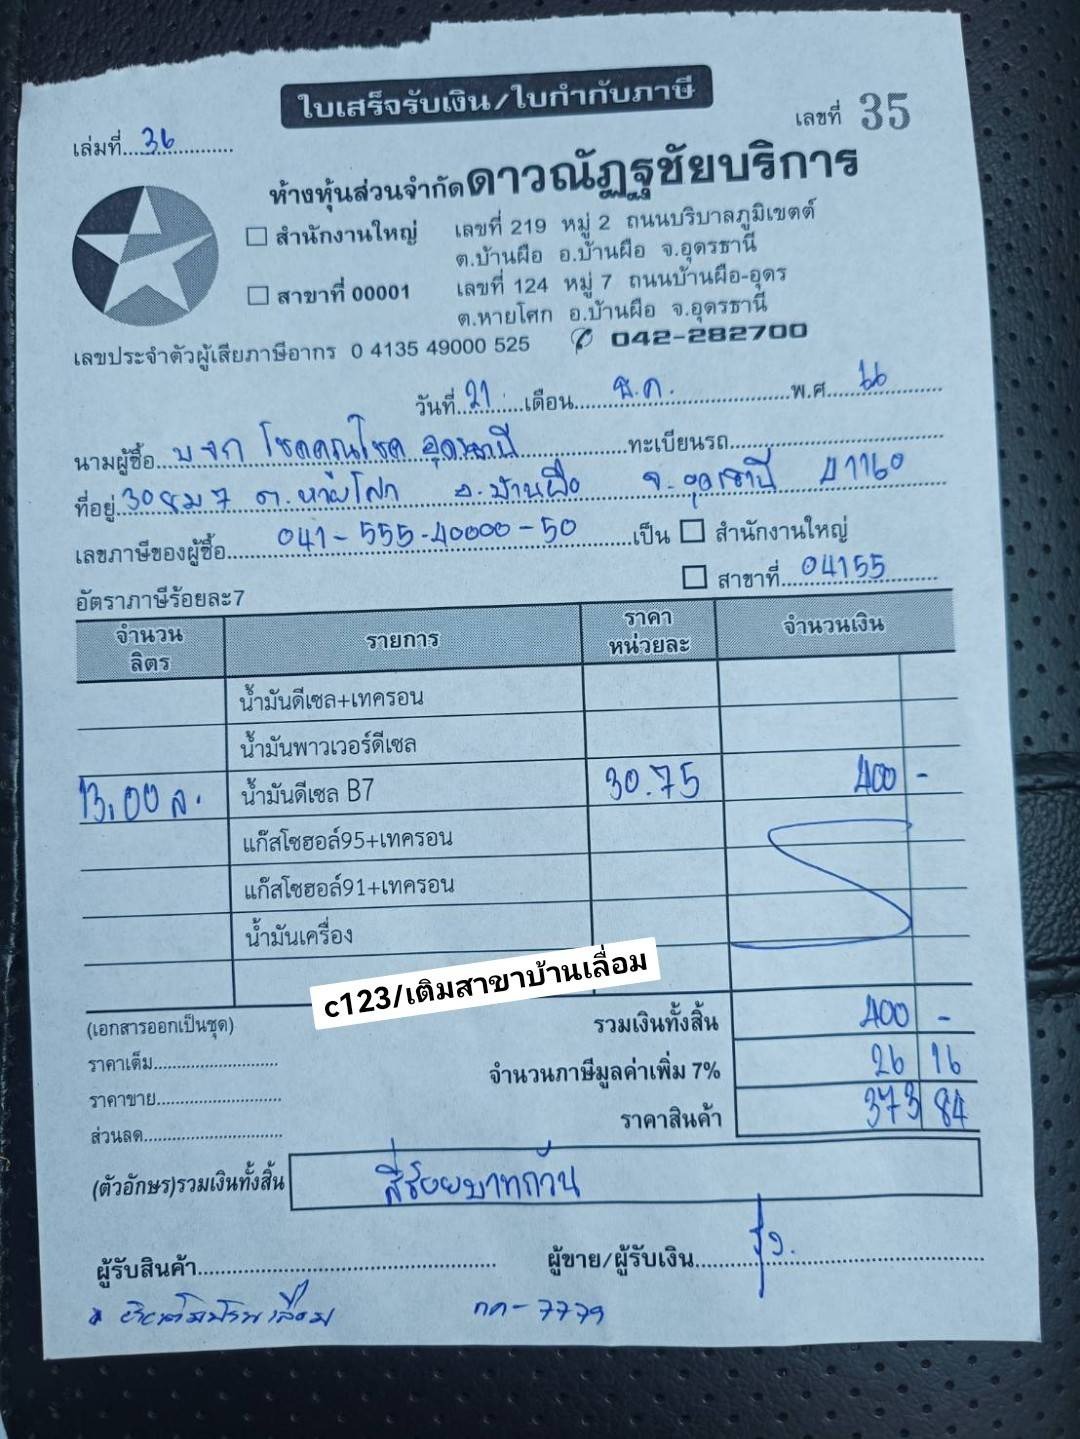 ใบเสร็จรับเงิน/ใบกำกับภาษี
เล่มที่...36... เลขที่ 35
ห้างหุ้นส่วนจำกัดดาวณัฏฐชัยบริการ
☐ สำนักงานใหญ่ เลขที่ 219 หมู่ 2 ถนนบริบาลภูมิเขตต์
ต.บ้านผือ อ.บ้านผือ จ.อุดรธานี
☐ สาขาที่ 00001 เลขที่ 124 หมู่ 7 ถนนบ้านผือ-อุดร
ต.หายโศก อ.บ้านผือ จ.อุดรธานี
เลขประจำตัวผู้เสียภาษีอากร 0 4135 49000 525 ✆ 042-282700
วันที่..21...เดือน...ธ.ค....พ.ศ...66
นามผู้ซื้อ..บจก โชคคูณโชค อุดรธานี...ทะเบียนรถ...
ที่อยู่.308 ม 7 ต.หายโศก อ.บ้านผือ จ.อุดรธานี 41160
เลขภาษีของผู้ซื้อ...041-555-40000-50...เป็น ☐ สำนักงานใหญ่
☐ สาขาที่...04155
อัตราภาษีร้อยละ7
จำนวนลิตร รายการ ราคาหน่วยละ จำนวนเงิน
น้ำมันดีเซล+เทครอน
น้ำมันพาวเวอร์ดีเซล
13.00 ล. น้ำมันดีเซล B7 30.75 400 -
แก๊สโซฮอล์95+เทครอน
แก๊สโซฮอล์91+เทครอน
น้ำมันเครื่อง
c123/เติมสาขาบ้านเลื่อม
(เอกสารออกเป็นชุด) รวมเงินทั้งสิ้น 400 -
ราคาเต็ม... จำนวนภาษีมูลค่าเพิ่ม 7% 26 16
ราคาขาย... ราคาสินค้า 373 84
ส่วนลด...
(ตัวอักษร)รวมเงินทั้งสิ้น สี่ร้อยบาทถ้วน
ผู้รับสินค้า... ผู้ขาย/ผู้รับเงิน...
7779